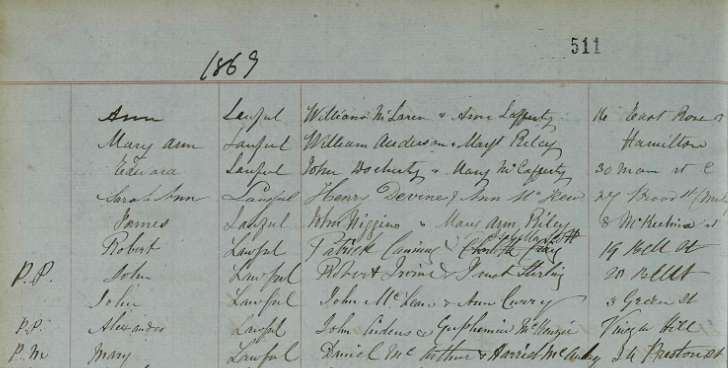 1869 511
Ann Lawful William McLaren & Anne Lafferty 16 East Rose
Mary Ann Lawful William Anderson & Margt Riley Hamilton
Edward Lawful John Docherty & Mary McCafferty 30 Main st
Sarah Ann Lawful Henry Devine & Ann 27 Broad St
James Lawful John Higgins & Mary Ann Riley 8
Robert Lawful Patrick 19 Bell St
P.P. John Lawful Robert Irvine & Janet Stirling 20 Bell St
John Lawful John McLean & Ann Curry 3 Green St
P.P. Alexander Lawful John & Euphemia McKenzie Vinegar Hill
P.M Mary Lawful Daniel Mc Arthur & Harriet 34 Preston St